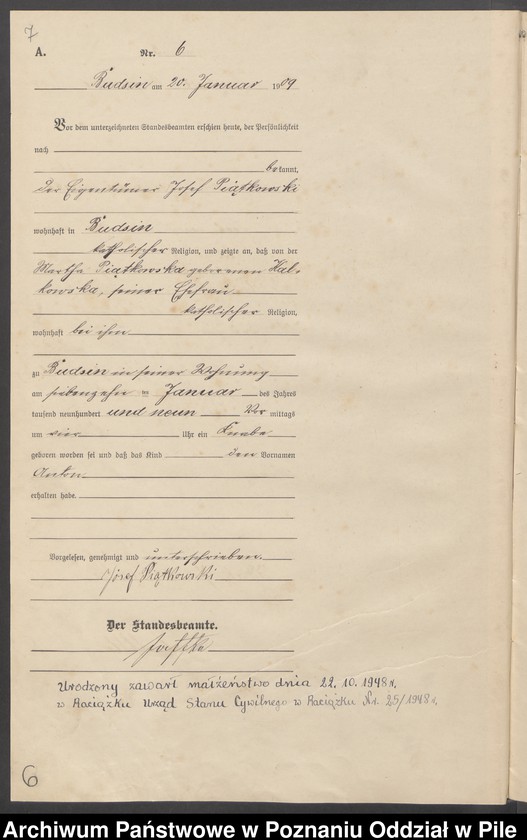 7
A.
Nr. 6
Budsin am 20. Januar 1909
Vor dem unterzeichneten Standesbeamten erschien heute, der Persönlichkeit
nach
bekannt,
der Eigentümer Josef Piątkowski
wohnhaft in Budsin
katholischer Religion, und zeigte an, daß von der
Martha Piątkowska geborenen Hal-
kowska, seiner Ehefrau
katholischer Religion,
wohnhaft bei ihm
zu Budsin in seiner Wohnung
am siebenzehn ten Januar des Jahres
tausend neunhundert und neun Vor mittags
um vier Uhr ein Knabe
geboren worden sei und daß das Kind den Vornamen
Anton
erhalten habe.
Vorgelesen, genehmigt und unterschrieben.
Józef Piątkowski
Der Standesbeamte.
Urodzony zawarł małżeństwo dnia 22. 10. 1948 r.
w Raciążku Urząd Stanu Cywilnego w Raciążku Nr. 25/1948 r.
6
Archiwum Państwowe w Poznaniu Oddział w Pile